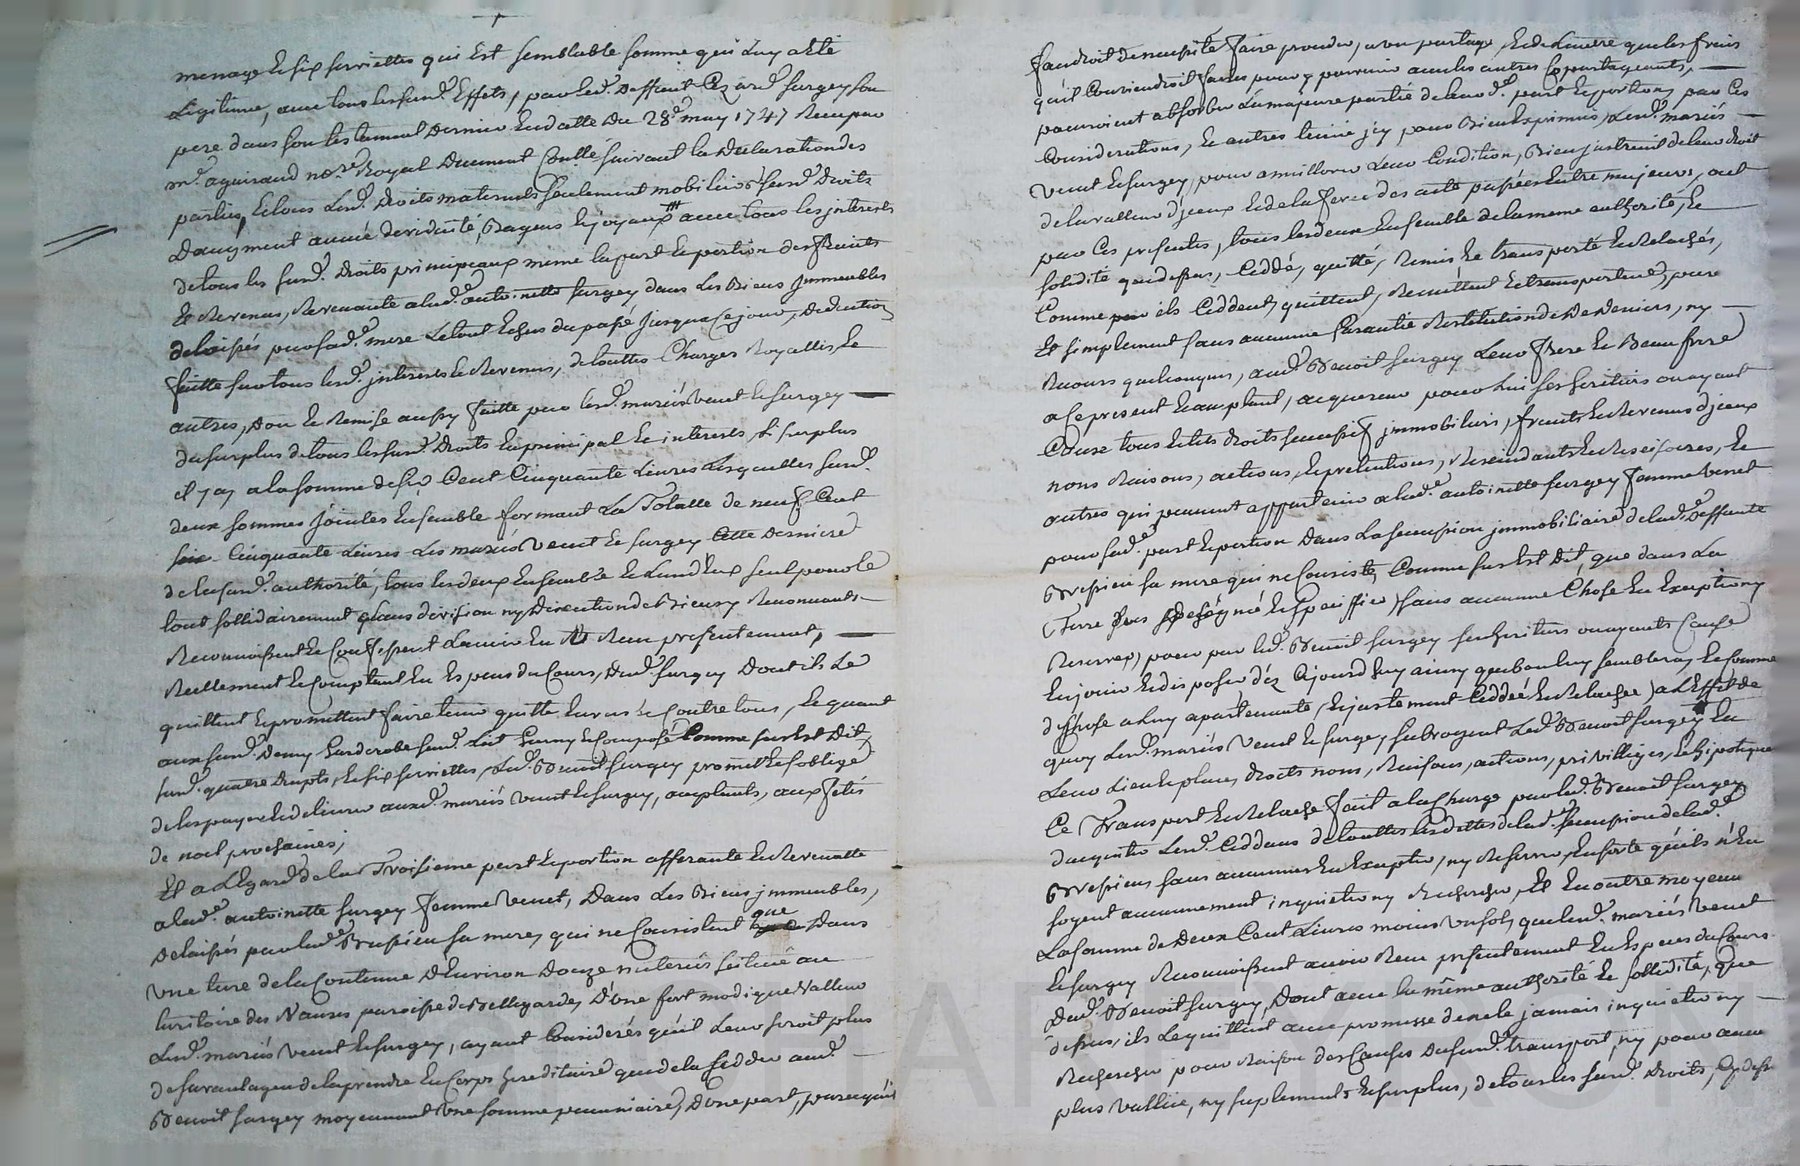 menage & six serviettes qui est semblable somme qui luy a été
Légitimé, avec tous les sus.d effets, par led. deffunt Cezard Surgey son
pere dans son testament dernier en datte du 28e may 1747 Receu par
m.e aguiraud no.re Royal duement Con.lle suivant la declaration des
parties, & tous lesd. droits maternels seulement mobiliers sus.d droits
daugment année de viduité, Bagues & joyaux avec tous les interests
de tous les sus.d droits principaux meme la part & portion des fruits
& Revenus, Revenante a lad.e antoinette Surgey dans les Biens Immeubles
delaissés par sad.e mere le tout echus du passé jusqua ce jour, deduction
faitte sur tous lesd. interests & Revenus, de touttes Charges Royalles, &
autres, don & Remise aussy faitte par lesd. mariés Venet & Surgey
du surplus de tous les sus.d droits en principal & interests, si surplus
il y a, a la somme de six Cent Cinquante Livres Lesquelles sus.d
deux sommes jointes ensemble formant La Totalle de neuf Cent
Cinquante Livres Les mariés Venet & Surgey Cette derniere
de la sus.d authorité, tous les deux ensemble & Lun d'eux seul pour le
tout sollidairement sans division ny discution de Biens y Renonceants
Reconnoissent & Confessent L'avoir eu & Receu presentement,
Reellement & Comptant en Especes du Cours, dud. Surgey dont ils Le
quittent & promettent faire tenir quitte envers & Contre tous, & quant
aux sus.d demy Gardcrobe sus.d Lit Garny & Composé Comme sus est dit,
sus.d quatre draps, & six serviettes, Led. Benoit Surgey promet & s'oblige
de les payer & delivrer auxd. mariés Venet & Surgey, acceptants, aux fetes
de noel prochaines;
Et a L'Egard de la Troisieme part & portion afferante & Revenante
a lad.e antoinette Surgey femme Venet, dans Les Biens immeubles,
delaissés par lad.e Bressieu sa mere, qui ne Consistent que dans
une terre de la Contenue d'environ douze situéé au
territoire des Nauzes paroisse de Bellegarde, d'une fort modique Valleur
Lesd. mariés Venet & Surgey, ayant Considerés qu'il Leur seroit plus
desavantageux de la prendre en Corps hereditaire que de la Cedder aud.
Benoit Surgey moyennant une somme pecuniaire, d'une part, parce qu'il
faudroit de necessité faire proceder, a un partage, & de Lautre que les frais
qu'il Conviendroit faire pour y parvenir avec les autres Copartageants,
pourroient absorber La majeure partie de leur d. part & portion, par Ces
Considerations, & autres tenue icy pour Bien Exprimés, Lesd. mariés
Venet & Surgey, pour améllorer Leur Condition, Bien instruit de leur droit
de la valleur d'jceux & de la force des acte passées Entre majeurs, ont
par Ces presentes, tous les deux Ensemble de la meme authorité, &
solidité que dessus, Ceddés, quitté, Remis & transporté & Relachés,
Comme ils Ceddent, quittent, Remettent & transportent, pure
Et simplement sans aucune Garantie Restitution de deniers, ny
Recours quelconques, aud. Benoit Surgey Leur frere & Beaufrere
a Ce present & acceptant, acquereur pour Lui ses heritiers ou ayant
Cause tous & tels droits successif immobiliers, fruits & Revenus d'jceux
noms Raisons, actions, & pretentions, Rescindants & Rescisoires, &
autres qui peuvent appartenir a lad.e antoinette Surgey femme Venet
pour sad.e part & portion dans La succession immobiliaire de lad. deffunte
Bressieu sa mere qui ne Consiste, Comme sus est dit, que dans La
Terre sus & speciffiée, sans aucune Chose En Excepter ny
Reserver, pour par led. Benoit Surgey ses heritiers ou ayants Cause
En jouir & disposer dez aujourd'huy ainsy que bon luy semblera, & Comme
d'chose a luy apartenante, & justement Ceddéé & Relachéé, a L'Effet de
quoy Lesd. mariés Venet & Surgey subrogent Led. Benoit Surgey En
Leur Lieu & place, droits noms, Raisons, actions, privilliges, & hipoteque
Ce Transport & Relache fait a la Charge par led. Benoit Surgey
d'acquitter Lesd. Ceddans de touttes les dettes de lad. succession de lad.e
Bressieu sans aucunes En Excepter, ny Reserver, En sorte qu'ils n'En
soyent aucunement inquietté ny Recherché, Et En outre moyenn
La somme de deux Cent Livres moins Vn sol, que lesd. mariés Venet
& Surgey Reconnoissent avoir Receu presentement En Especes du Cours
dud. Benoit Surgey, dont avec la même authorité & sollidité, que
dessus, ils Le quittent avec promesse de ne le jamais inquietter ny
Rechercher pour Raison des Causes du sus.d transport, ny pour aucu
plus Vallüe, ny suplement & surplus, de tous les sus.d droits, Cy dess